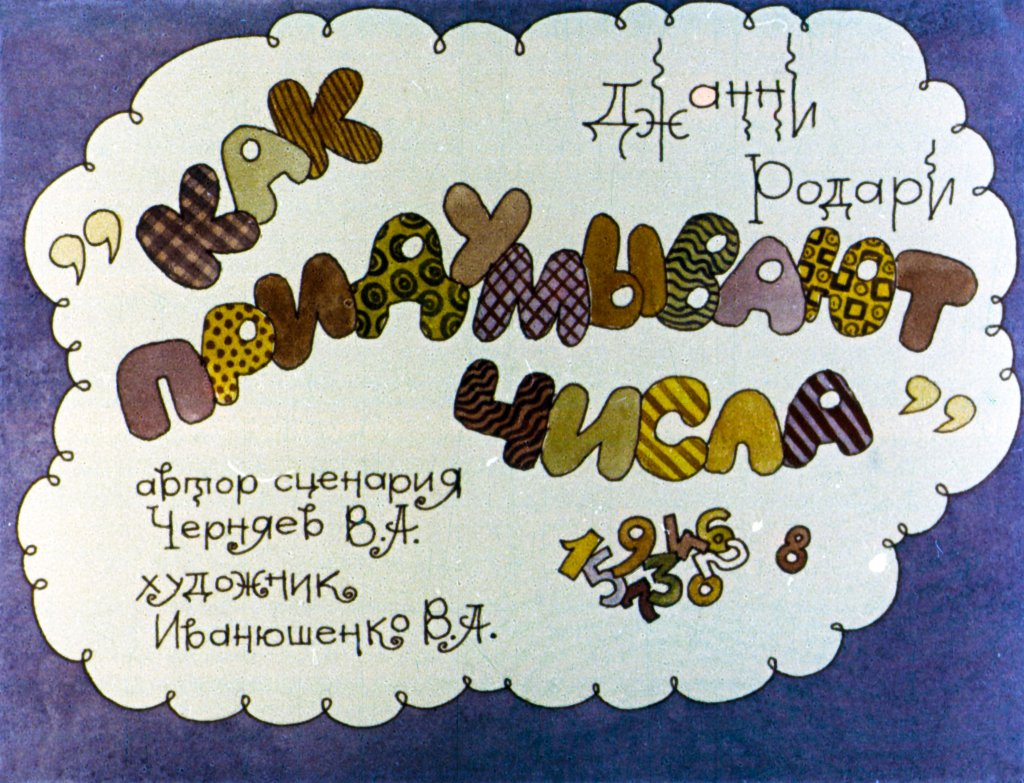 Джанни
Родари
"Как
придумывают
числа"
автор сценария
Черняев В.А.
художник
Иванюшенко В.А.